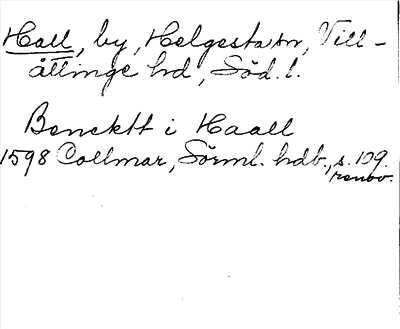 Hall, by, Helgesta sn, Vill-
åttinge hd, Söd. l.
Bencktt i Haall
1598 Collmar, Sörml. hdb., s. 109.
renov.